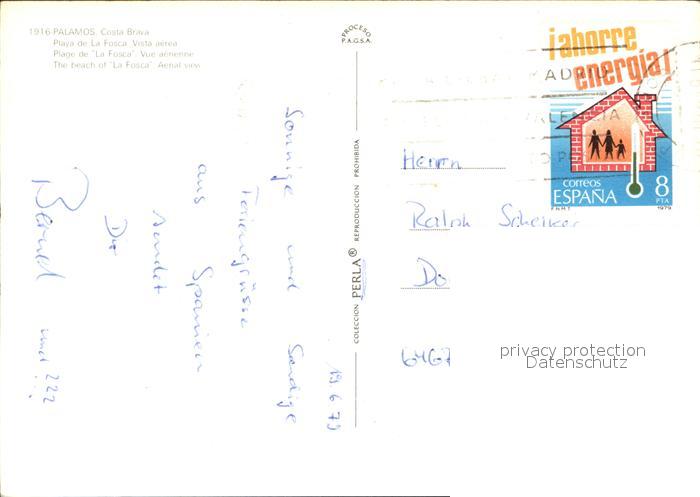 1916-PALAMOS. Costa Brava
Playa de La Fosca. Vista aérea
Plage de "La Fosca". Vue aérienne
The beach of "La Fosca". Aerial view
PROCESO
P.A.G.S.A.
COLECCION PERLA® REPRODUCCION PROHIBIDA
19.6.79
Sonnige und Sandige
Feriengrüsse
aus Spanien
sendet
Dir
Bernd und ???
Herrn
Ralph
Do
6467
¡ahorre
energía!
MADRID
VALENCIA
correos
ESPAÑA
8
PTA
F.N.M.T.
1979
privacy protection
Datenschutz